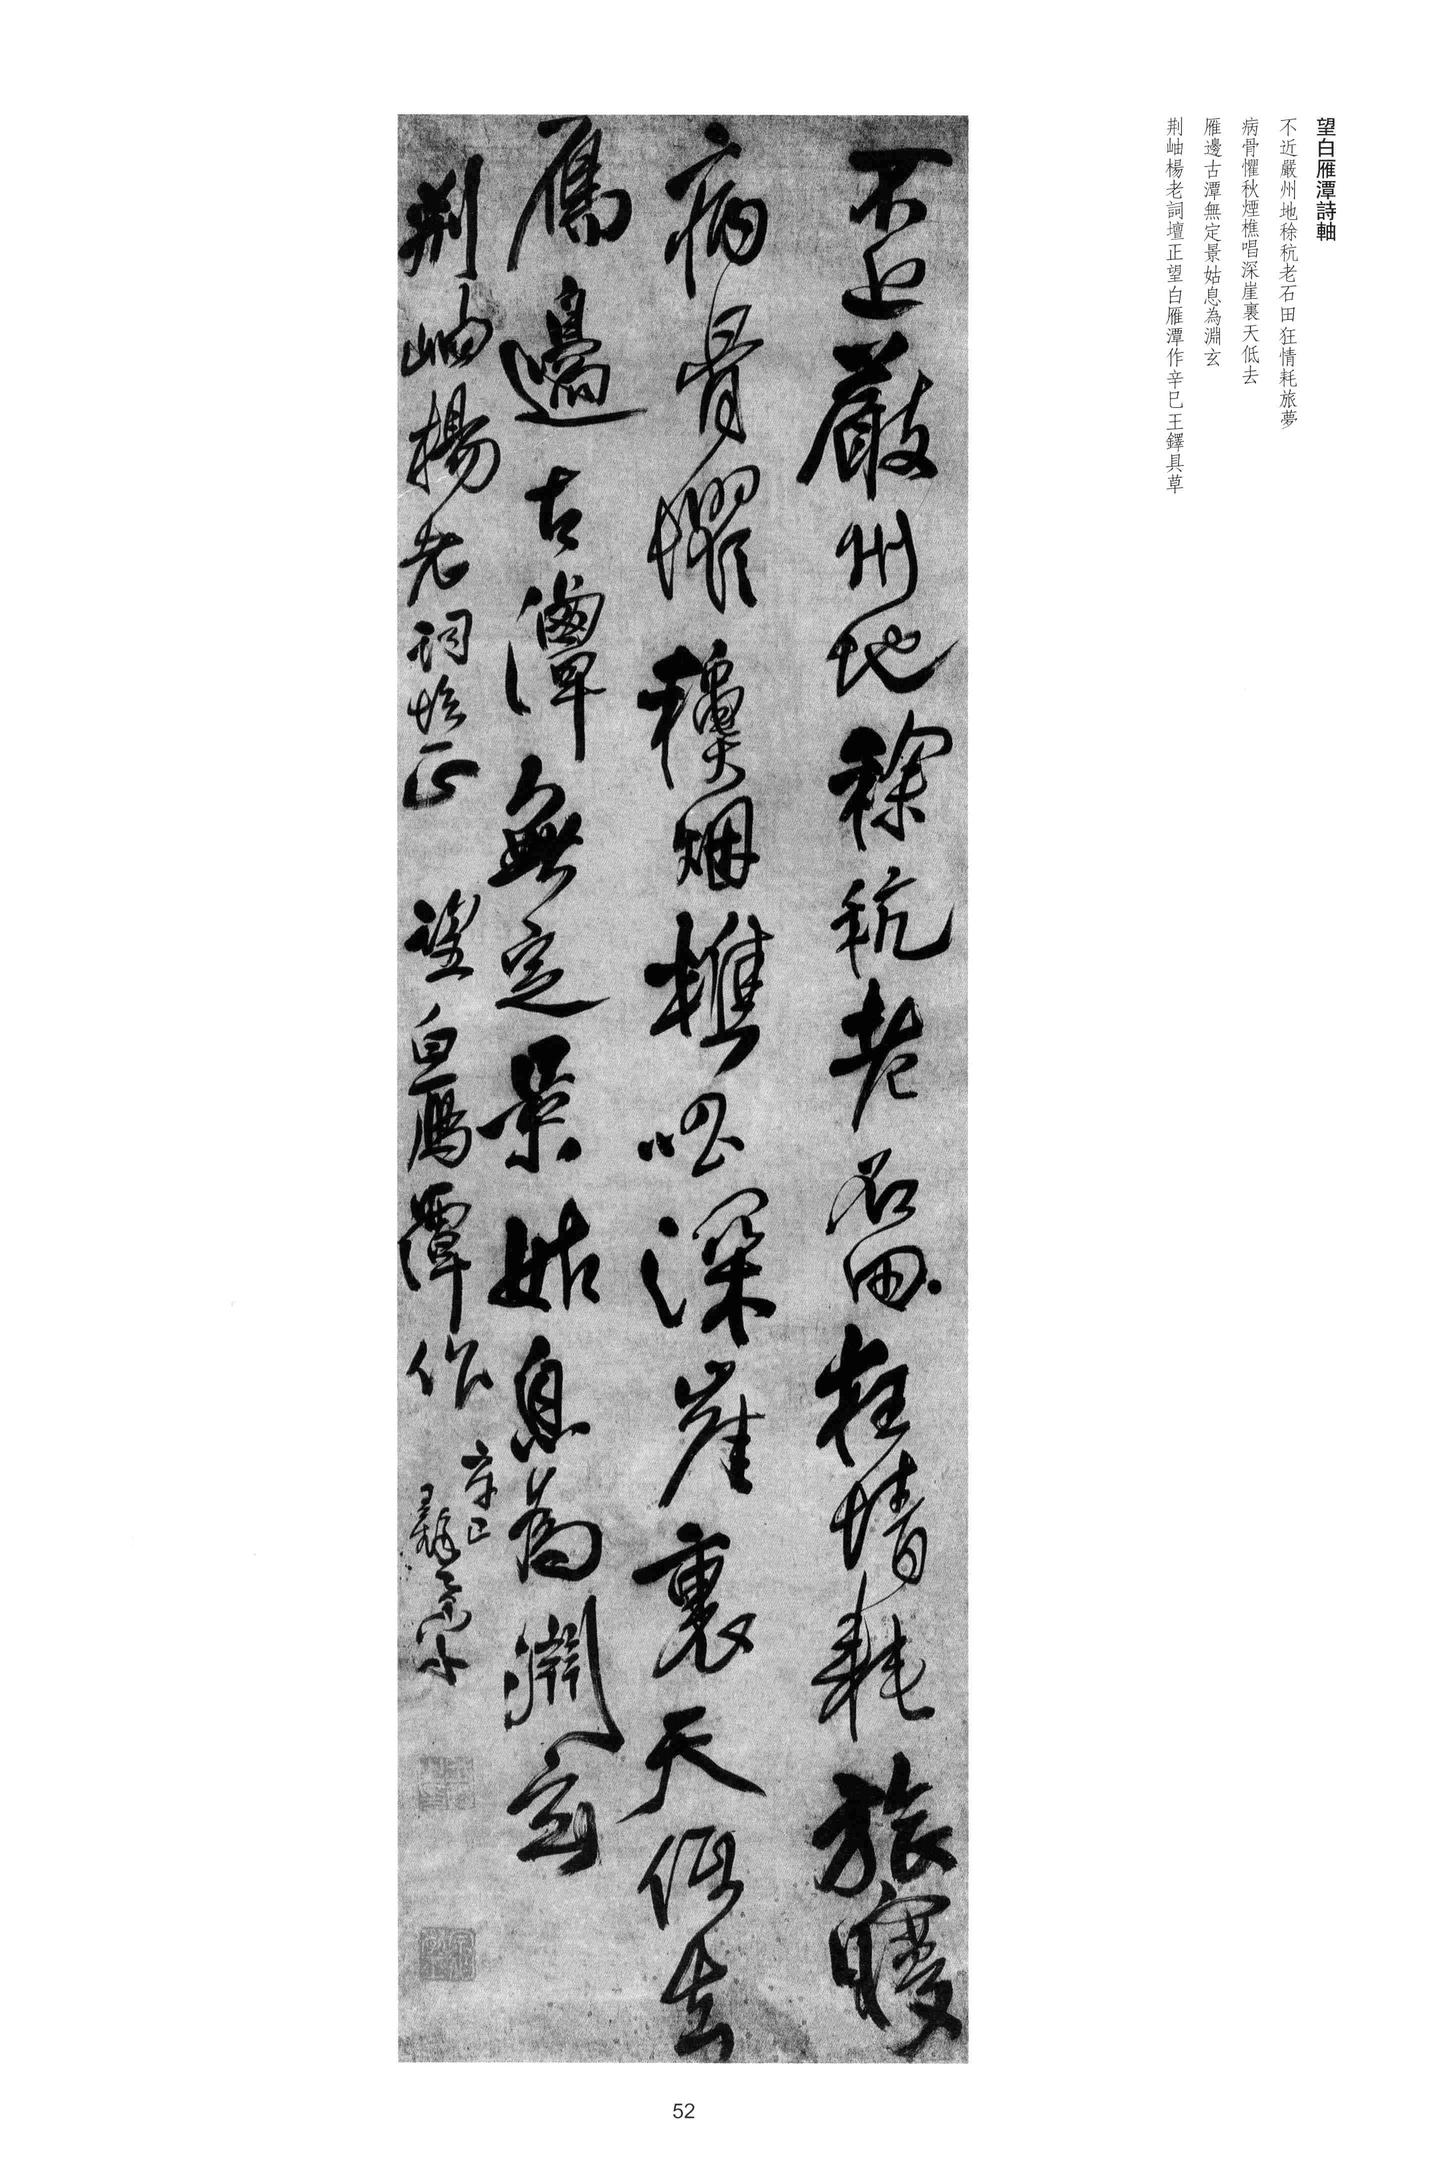 望白雁潭詩軸
不近嚴州地稌秔老石田狂情耗旅夢
病骨懼秋煙樵唱深崖裏天低去
雁邊古潭無定景姑息為淵玄
荆岫楊老詞壇正望白雁潭作辛巳王鐸具草
不近嚴州地稌秔老石田狂情耗旅夢
病骨懼穐烟樵唱深崖裏天低去
鴈邊古潭無定景姑息為淵玄
荆岫楊老詞壇正 望白鴈潭作 辛巳
王鐸具草
52